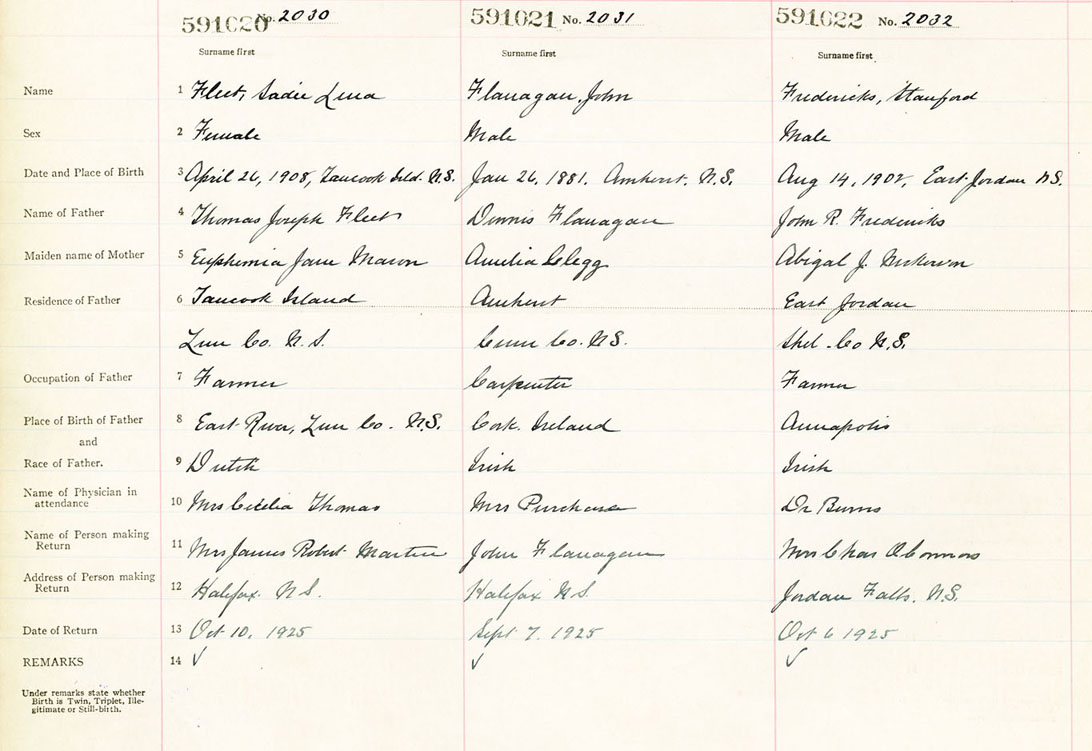 591020 No. 2030 591021 No. 2031 591022 No. 2032
Surname first Surname first Surname first
Name 1 Fleet, Sadie Lena Flanagan, John Fredericks, Stanford
Sex 2 Female Male Male
Date and Place of Birth 3 April 26, 1908, Tancook Isld. N.S. Jan 26, 1881, Amherst, N.S. Aug 14, 1902, East Jordan N.S.
Name of Father 4 Thomas Joseph Fleet Dennis Flanagan John R. Fredericks
Maiden name of Mother 5 Euphemia Jane Mason Amelia Clegg Abigal J.
Residence of Father 6 Tancook Island Amherst East Jordan
Lun Co. N.S. Cum Co. N.S. Shel. Co N.S.
Occupation of Father 7 Farmer Carpenter Farmer
Place of Birth of Father 8 East River, Lun Co. N.S. Cork, Ireland Annapolis
and
Race of Father. 9 Dutch Irish Irish
Name of Physician in
attendance 10 Mrs Cecelia Thomas Mrs Purchase Dr Burns
Name of Person making
Return 11 Mrs James Robert Martin John Flanagan Mrs Chas O'Connors
Address of Person making
Return 12 Halifax N.S. Halifax N S Jordan Falls, N.S.
Date of Return 13 Oct 10, 1925 Sept 7, 1925 Oct 6 1925
REMARKS 14 ✓ ✓ ✓
Under remarks state whether
Birth is Twin, Triplet, Ille-
gitimate or Still-birth.